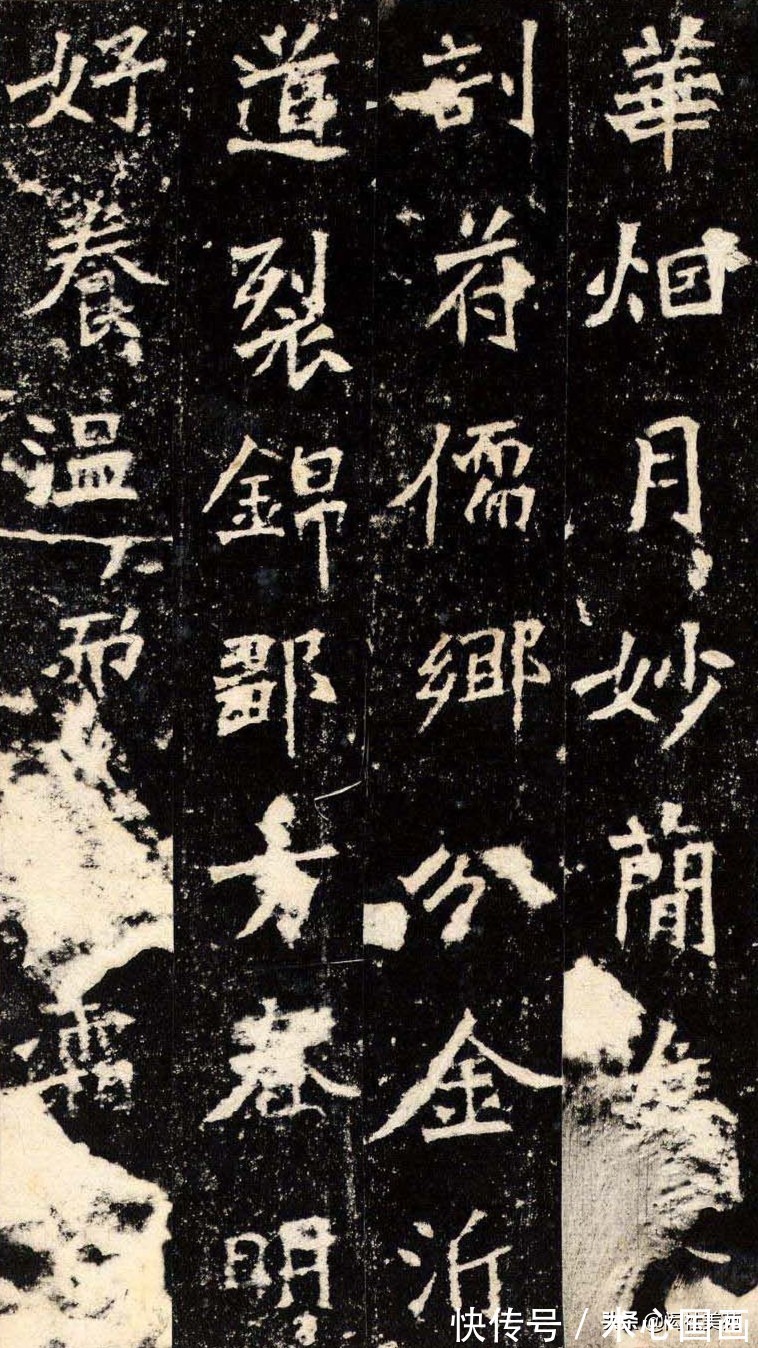 華烟月妙簡
剖苻儒鄉分金沂
道裂錦鄒方春明
好養溫而
快传号 /